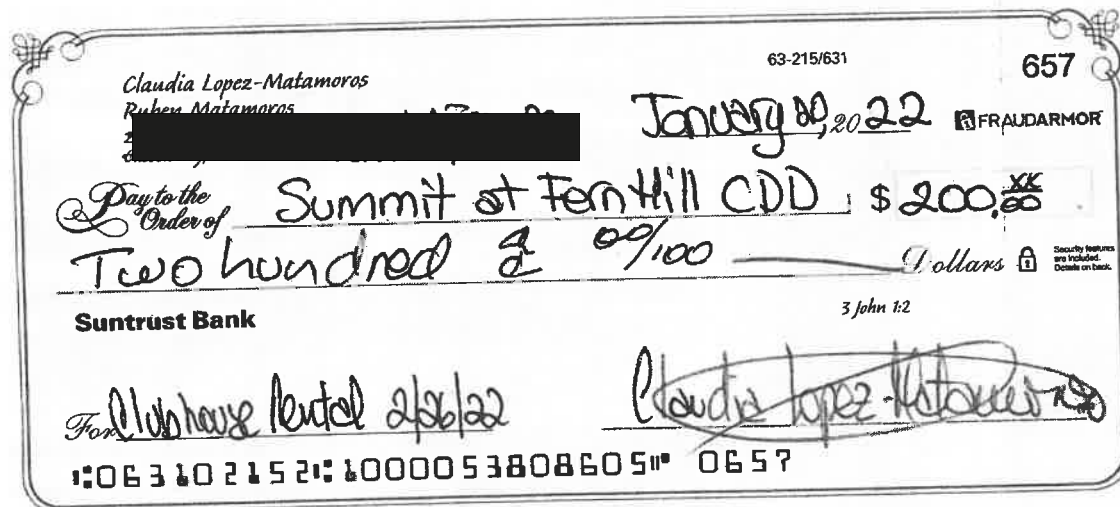 63-215/631
657
Claudia Lopez-Matamoros
Ruben Matamoros
January 20, 2022
FRAUDARMOR
Pay to the Order of Summit at FernHill CDD $ 200. XX/00
Two hundred & 00/100 Dollars
Security features are included. Details on back.
Suntrust Bank
3 John 1:2
For Clubhouse Rental 2/26/22
Claudia Lopez-Matamoros
⑆063102152⑆1000053808605⑈ 0657